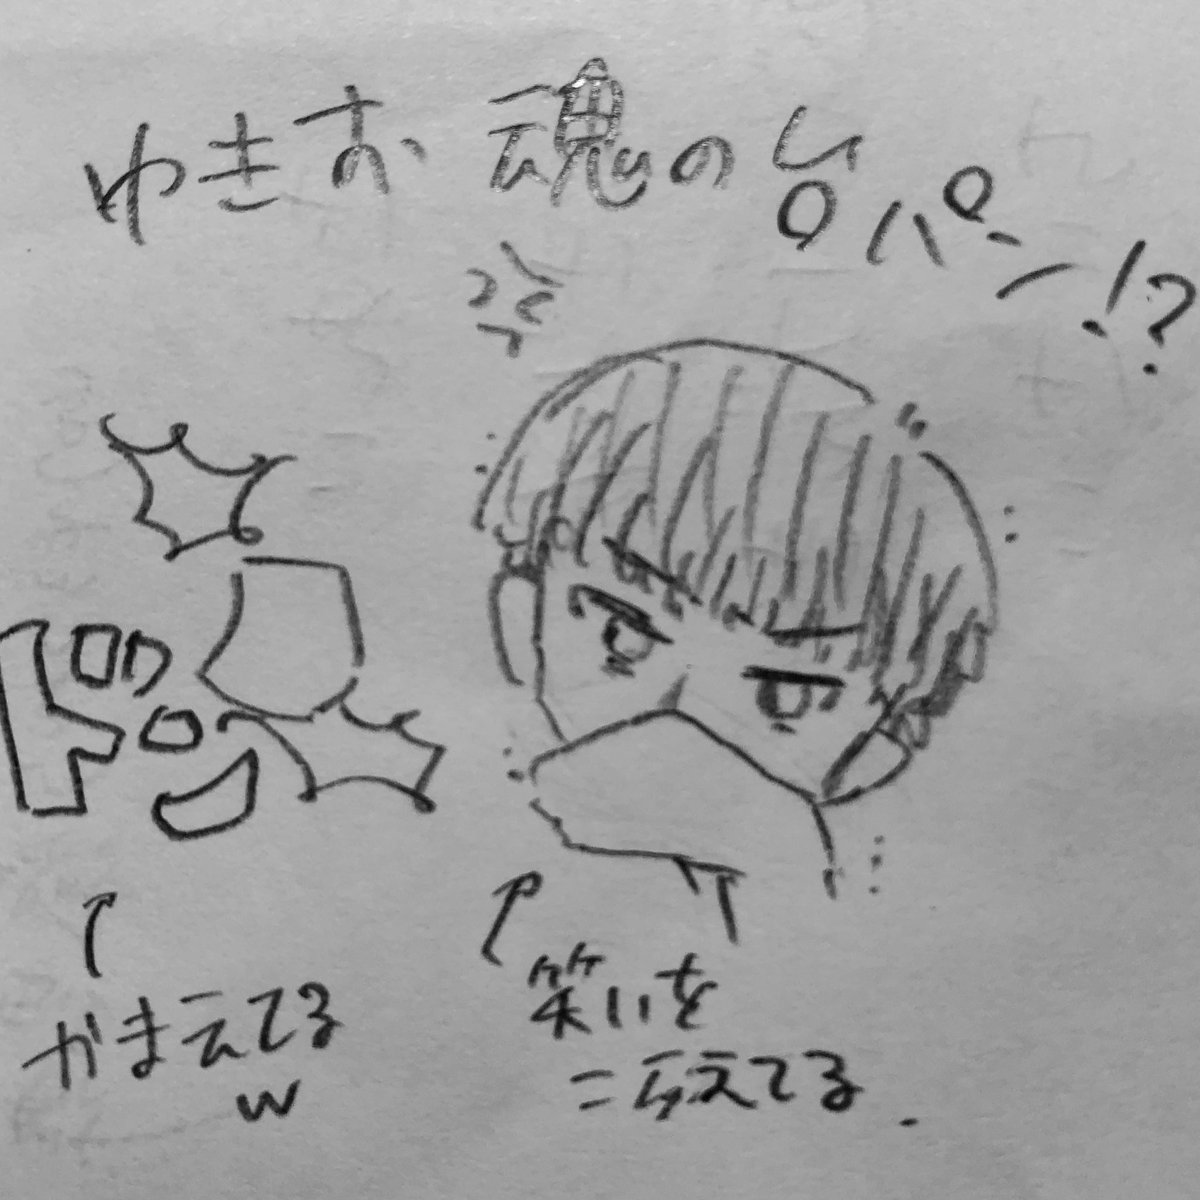 ゆきお 魂の台パン!?
ドン
かまえてる
w
笑いを
こらえてる.